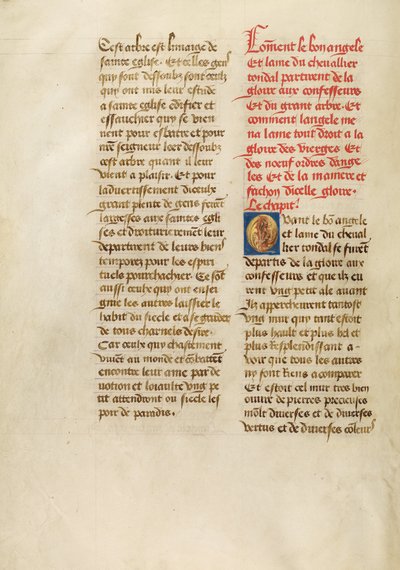 Cest arbre est limaige de
sainte eglise. Et celles gens
quy sont dessoubz sont ceulx
quy ont mis leur estude
a sainte eglise ediffier et
essauchier quy se vien
nent pour esbatre et pour
nr̃e seigneur loer dessoubz
cest arbre quant il leur
vient a plaisir. Et pour
laduertissement diceulx
grant plente de gens feirẽt
largesses aux saintes egli
ses et droiturierement leur
departent de leurs biens
temporez pour les espiri
tuelz pourchachier. Ce sont
aussi ceulx quy ont ensei
gnie les autres laissier le
habit du siecle et a se garder
de tous charnels desirs.
Car ceulx quy chastement
viuent au monde et cõbatent
encontre leur ame par de
uotion et loiaulte vng pe
tit attendront ou siecle les
poir de paradis.
Coment le bon angele
Et lame du cheuallier
tondal partirent de la
gloire aux confesseurs
Et du grant arbre. Et
comment langele me
na lame tout droit a la
gloire des vierges Et
des noeuf ordres dange
les Et de la maniere et
fachon dicelle gloire.
Le chapit̃
Quant le bõ angele
et lame du cheual
lier tondal se furẽt
departis de la gloire aux
confesseurs et que ilz eu
rent vng petit ale auant
Ilz apperchurent tantost
vng mur quy tant estoit
plus hault et plus bel et
plus resplendissant a
voir que tous les autres
ny font riens a comparer
Et estoit cel mur tres bien
ouure de pierres precieuses
mõlt diuerses et de diuerses
vertus et de diuerses couleurs